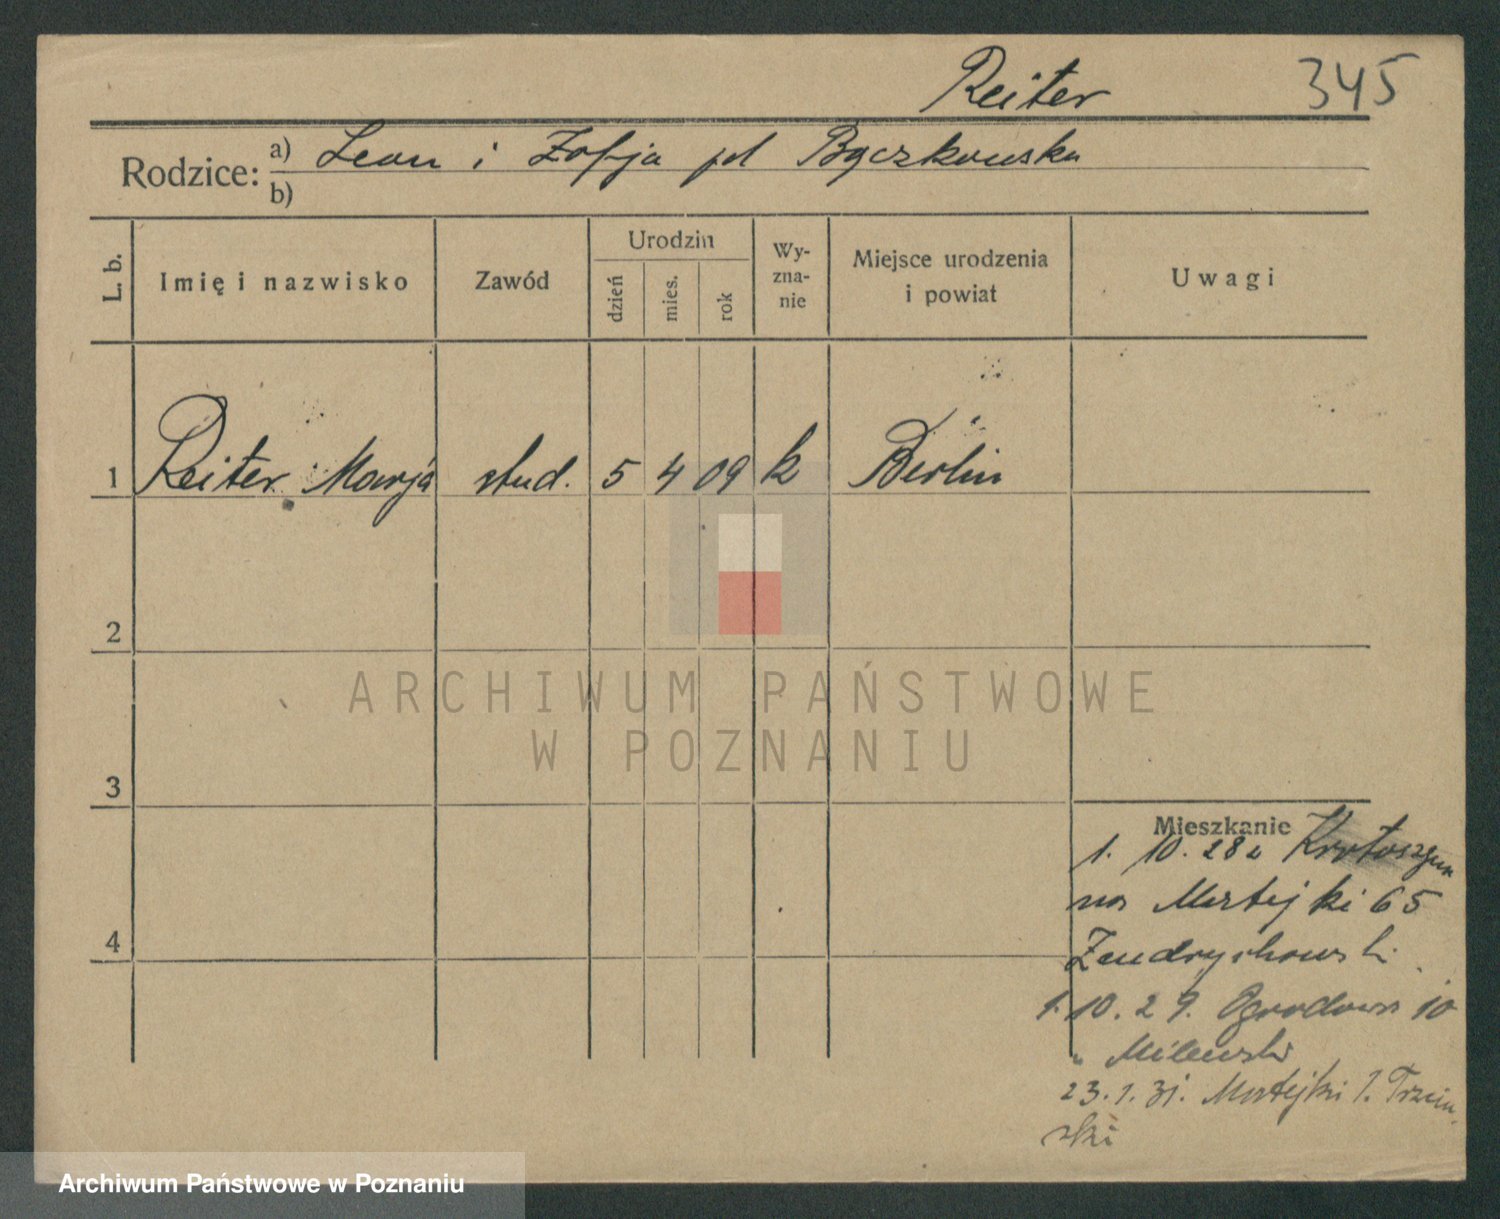 Reiter 345
Rodzice: a) Leon i Zofja pd Bączkowska
b)
L. b. Imię i nazwisko Zawód Urodzin dzień mies. rok Wy-zna-nie Miejsce urodzenia i powiat Uwagi
1 Reiter Marja stud. 5 4 09 k Berlin
2
ARCHIWUM PAŃSTWOWE
W POZNANIU
3
Mieszkanie
1. 10. 28 z Krotoszyn
na Matejki 65
Zendrychowski
1. 10. 29. Ogrodowa 10
" Milewski
23. 1. 31. Matejki 1. Trzciń
ski
4
Archiwum Państwowe w Poznaniu